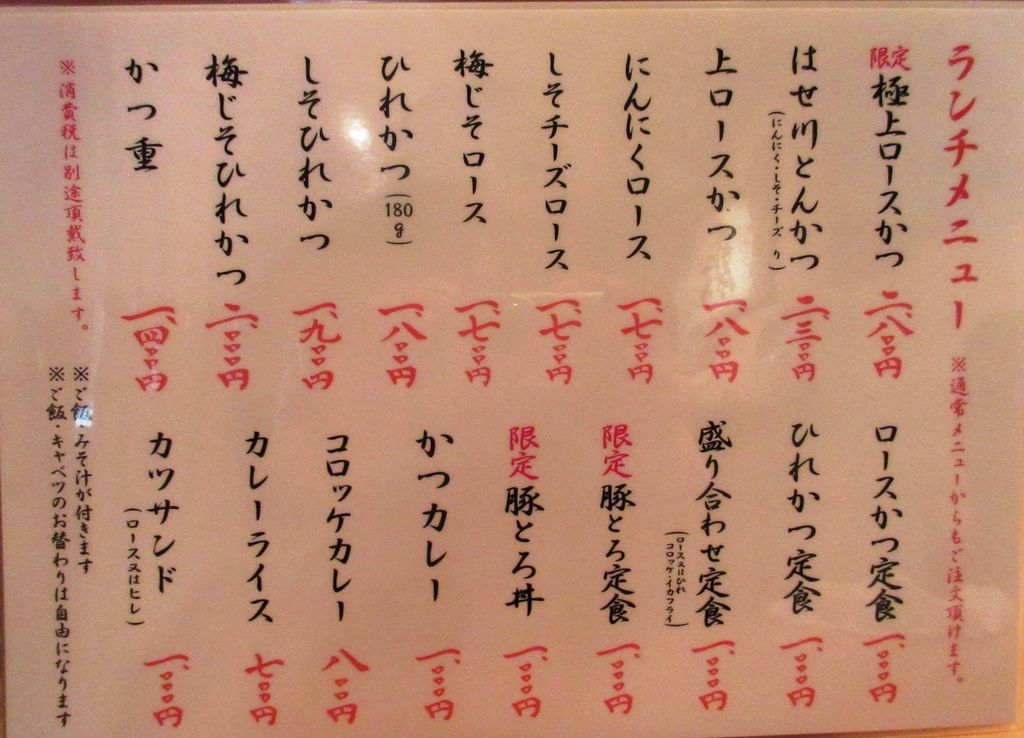 ランチメニュー
※通常メニューからもご注文頂けます。
限定 極上ロースかつ 二、八〇〇円
はせ川とんかつ 二、三〇〇円
(にんにく・しそ・チーズ り)
上ロースかつ 一、八〇〇円
にんにくロース 一、七〇〇円
しそチーズロース 一、七〇〇円
梅じそロース 一、七〇〇円
ひれかつ(180g) 一、八〇〇円
しそひれかつ 一、九〇〇円
梅じそひれかつ 二、〇〇〇円
かつ重 一、四〇〇円
※消費税は別途頂戴致します。
ロースかつ定食 一、〇〇〇円
ひれかつ定食 一、〇〇〇円
盛り合わせ定食 一、〇〇〇円
(ロース又はひれ
コロッケ・イカフライ)
限定 豚とろ定食 一、〇〇〇円
限定 豚とろ丼 一、〇〇〇円
かつカレー 一、〇〇〇円
コロッケカレー 八〇〇円
カレーライス 七〇〇円
カツサンド 一、〇〇〇円
(ロース又はヒレ)
※ご飯・みそ汁が付きます
※ご飯・キャベツのお替わりは自由になります